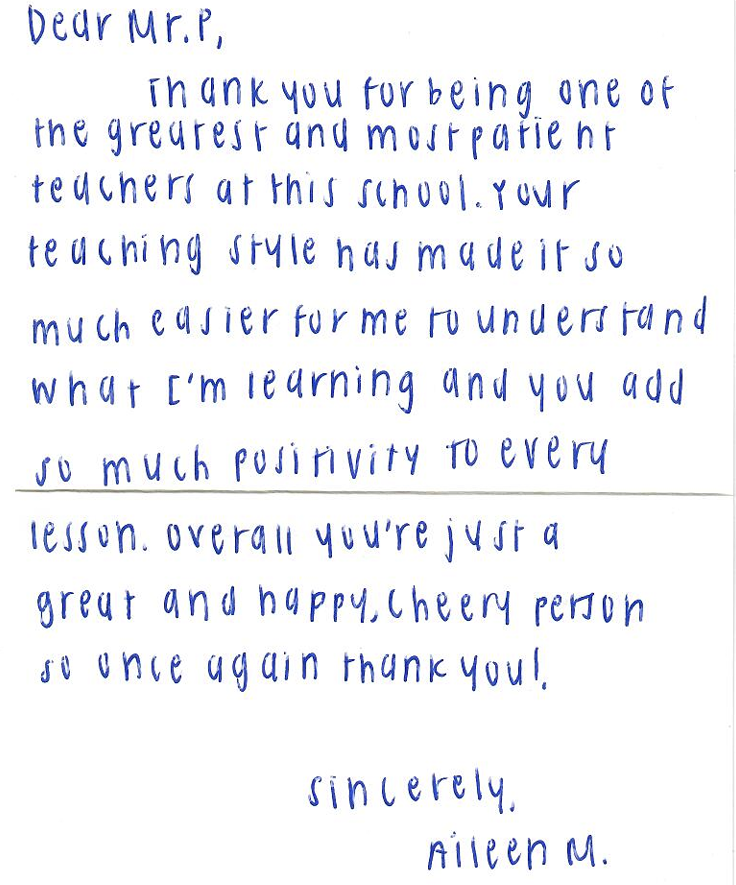 Dear Mr. P,
Thank you for being one of
the greatest and most patient
teachers at this school. Your
teaching style has made it so
much easier for me to understand
what I'm learning and you add
so much positivity to every
lesson. Overall you're just a
great and happy, cheery person
so once again thank you!
Sincerely,
Aileen M.